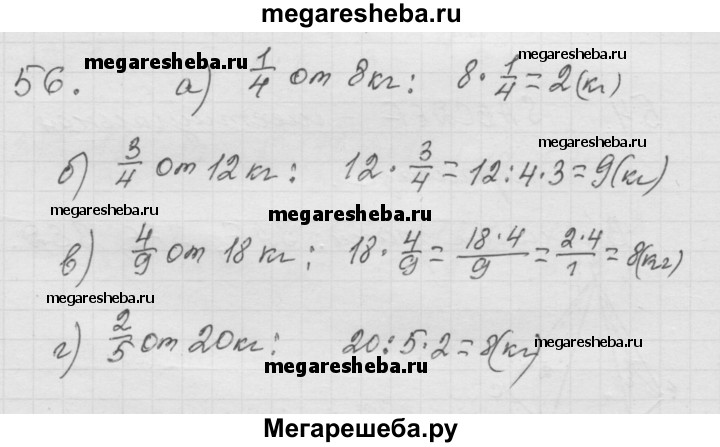 megaresheba.ru
56. а) 1/4 от 8кг: 8·1/4=2(кг)
megaresheba.ru megaresheba.ru
megaresheba.ru
б) 3/4 от 12кг: 12·3/4=12:4·3=9(кг)
megaresheba.ru megaresheba.ru
в) 4/9 от 18 кг: 18·4/9=18·4/9=2·4/1=8(кг)
г) 2/5 от 20кг: 20:5·2=8(кг)
megaresheba.ru megaresheba.ru
Мегарешеба.ру